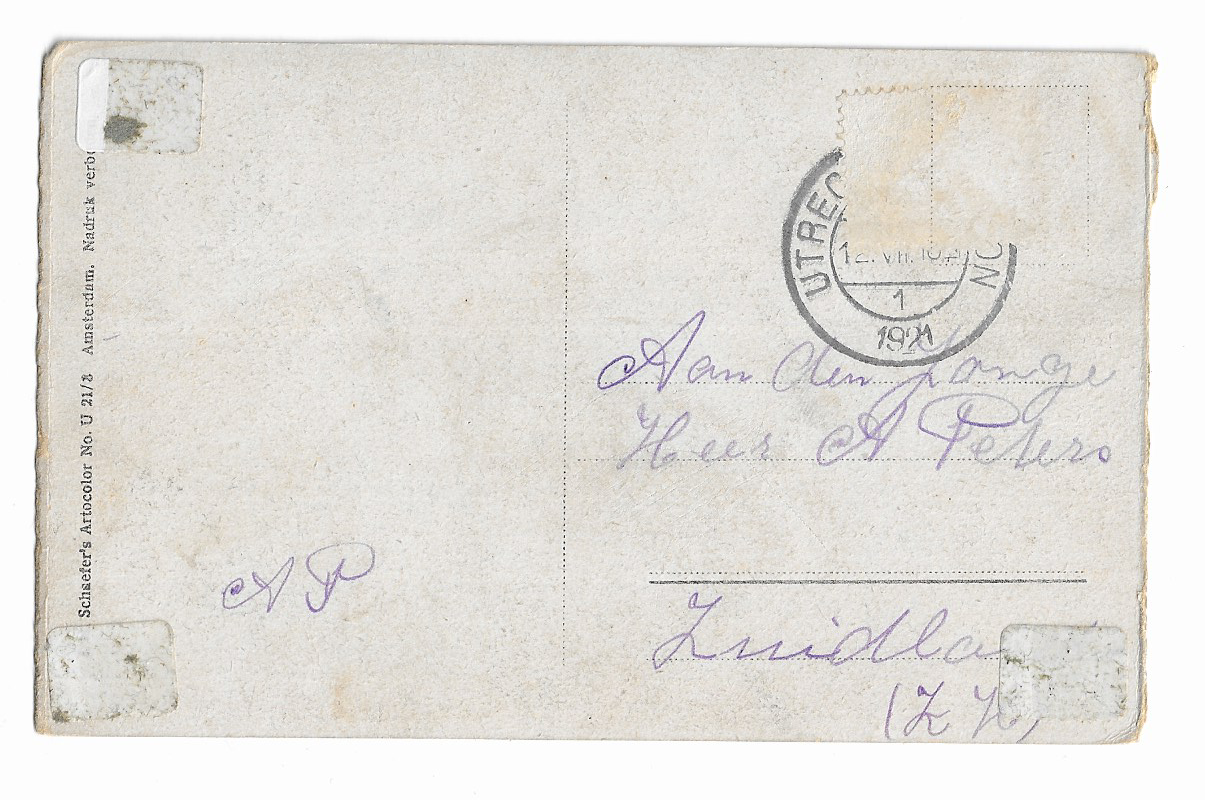 Schaefer's Artocolor No. U 21/8 Amsterdam. Nadruk verb
UTREC
NO
12.VII.
1
1921
Aan den Jonge
Heer A Peters
A P
Zuidla
(Z H)